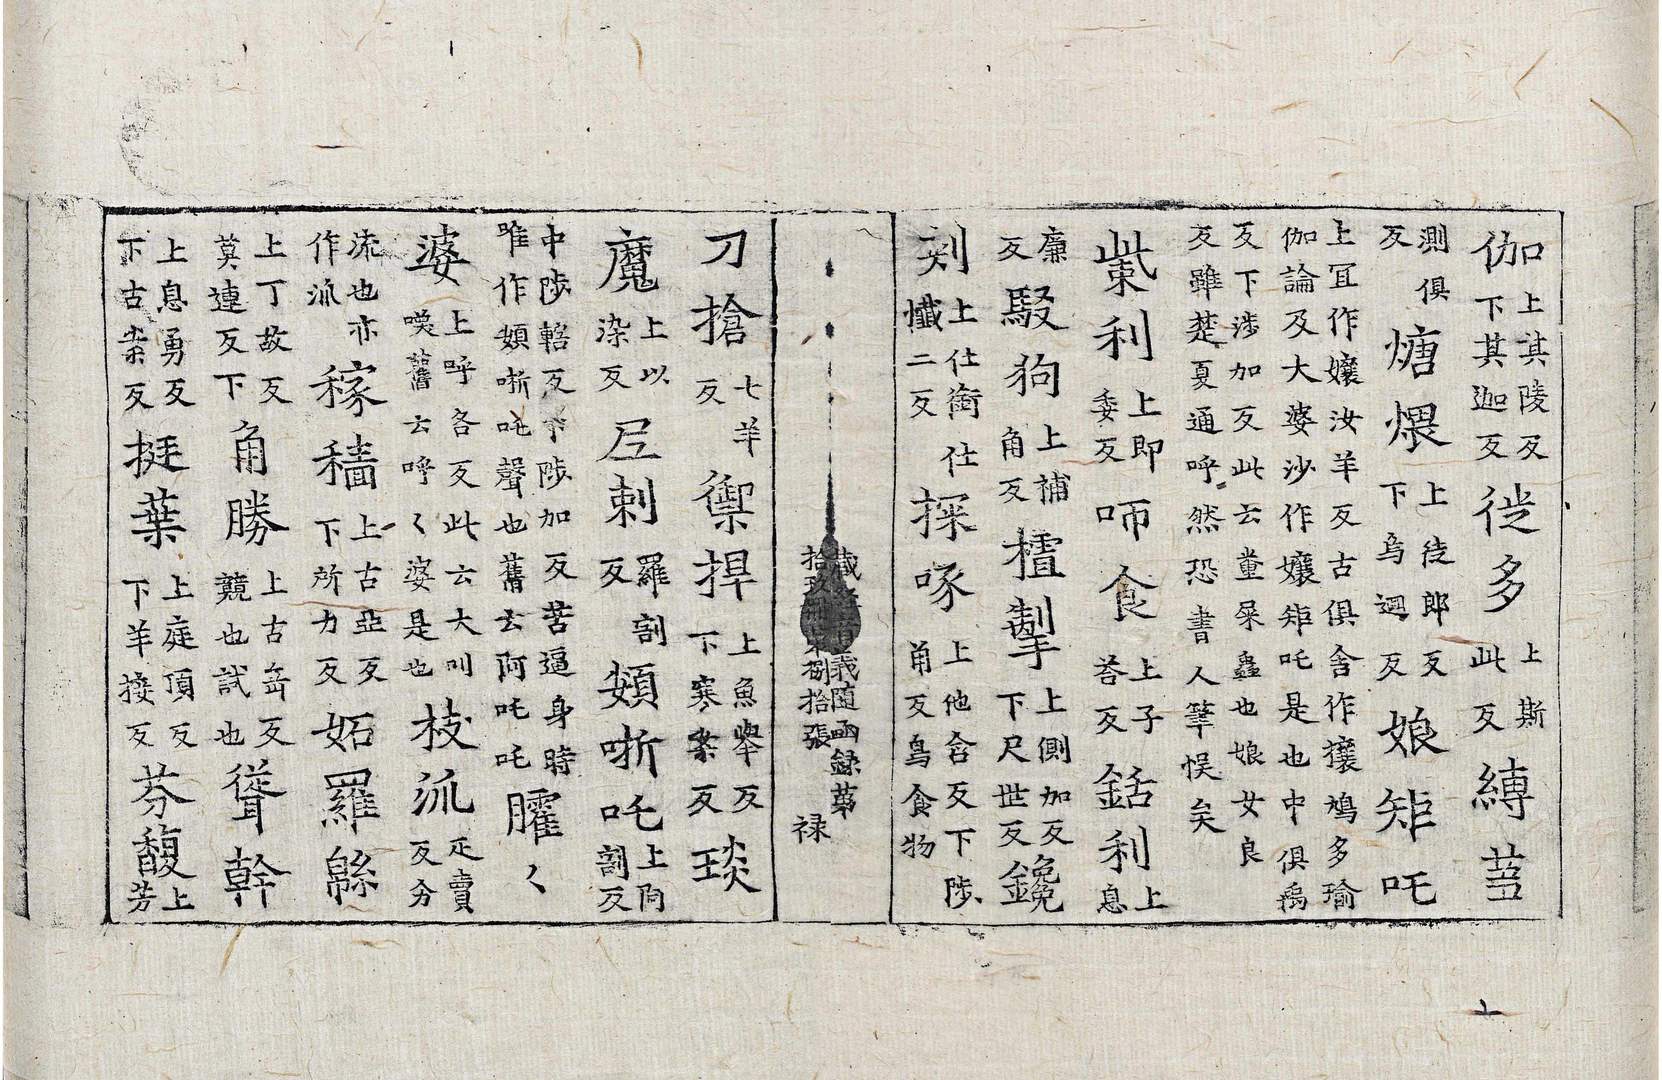 伽上其陵反下其迦反 徙多上斯此反 縛蒭
測俱反 煻煨上徒郎反下烏迴反 娘矩吒
上冝作孃汝羊反古俱舎作攘鳩多瑜伽論及大婆沙作孃矩吒是也中俱禹
反下涉加反此云糞屎蟲也娘女良反雖楚夏通呼然恐書人筆悮矣
㭰利上即委反 咂食上子荅反 銛利上息
廉反 駁狗上補角反 樝掣上側加反下尺世反 鑱
刾上仕銜仕懺二反 探啄上他含反下陟角反鳥食物
藏經音義随函録第
拾玖冊第捌拾張 禄
刀搶七羊反 禦捍上魚舉反下寒案反 琰
魔上以染反 尼剌羅割反 頞哳吒上阿割反
中陟轄反下陟加反苦逼身時唯作頞哳吒聲也舊云阿吒吒 臛〻
婆上呼各反此云大叫喚舊云呼〻婆是也 枝泒疋賣反分
流也亦作派 稼穡上古亞反下所力反 妬羅緜
上丁故反莫連反下 角勝上古岳反競也試也 聳幹
上息勇反下古案反 挺葉上庭頂反下羊接反 芬馥上芳